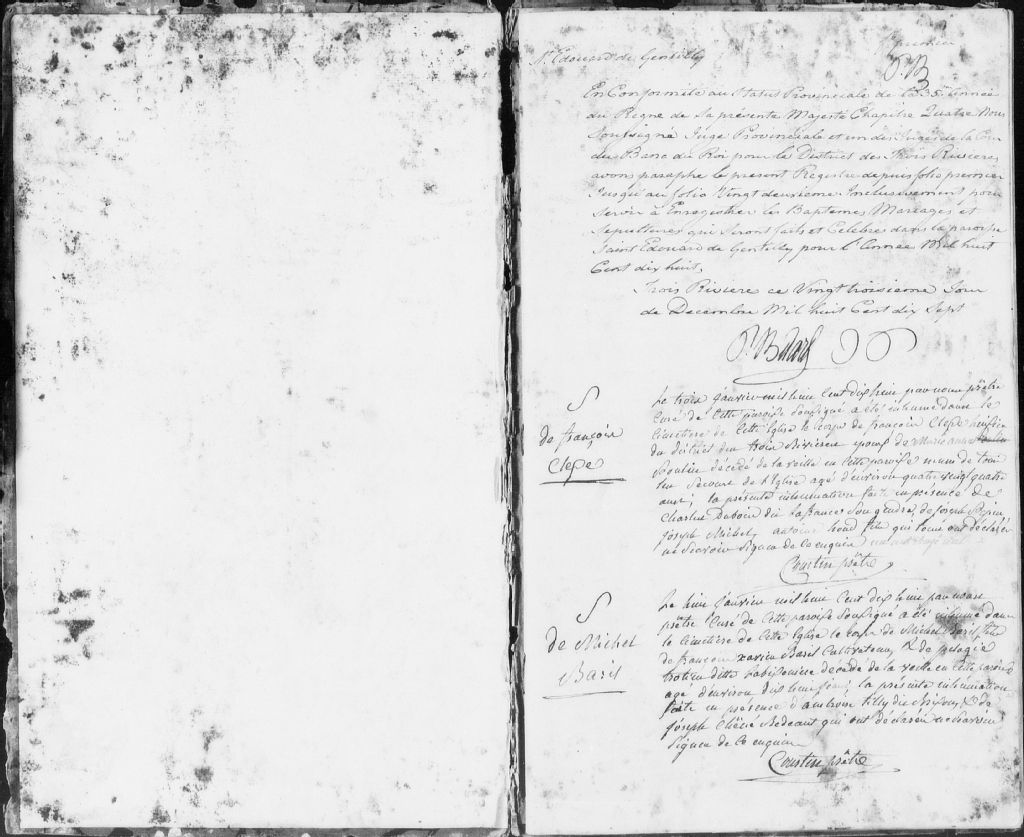 St Edouard de Gentilly
P. B
En Conformité au Status Provinciale de la 35e Année
du Regne de Sa présente Majesté Chapitre Quatre Nous
Soussigné Juge Provinciale et un des Juges de la Cour
du Banc du Roi pour le District des Trois Rivieres
avons paraphé le present Registre depuis folio premier
Jusqu'au folio Vingt deuxieme Inclusivement pour
Servir à Enregistrer les Baptemes Mariages et
Sepultures qui Seront faits et Celebrés dans la paroisse
Saint Edouard de Gentilly pour l'Année Mil huit
Cent dix huit.
Trois Riviere ce Vingt troisieme Jour
de Decembre Mil huit Cent dix Sept
P. Bedard
S
de françois
Clepe
Le trois Janvier mil huit Cent dix huit par nous prêtre
Curé de Cette paroisse Soussigné a été inhumé dans le
Cimetière de Cette Eglise le corps de françois Clepe
du district des trois Rivieres Epoux de Marie anne
décédé de la veille en Cette paroisse muni de tous
les Secours de l'Eglise agé d'environ quatre vingt quatre
ans; la présente inhumation faite en présence de
Charles Dubois dit Lafrance Son gendre, de Joseph
Joseph Michel, qui tous ont déclaré
ne Scavoir Signer de Ce enquis
Courtin prêtre
S
de Michel
Baril
Le huit Janvier mil huit Cent dix huit par nous
prêtre Curé de Cette paroisse Soussigné a été inhumé dans
le Cimetière de Cette Eglise le corps de Michel Baril fils
de françois xavier Baril Cultivateur, & de pelagie
trotier ditte Labissonière decedé de la veille en Cette paroisse
agé d'environ dix huit jours; la présente inhumation
faite en présence d'ambroise tilly & de
Joseph Bedeaut qui ont déclaré ne Scavoir
Signer de Ce enquis
Courtin prêtre